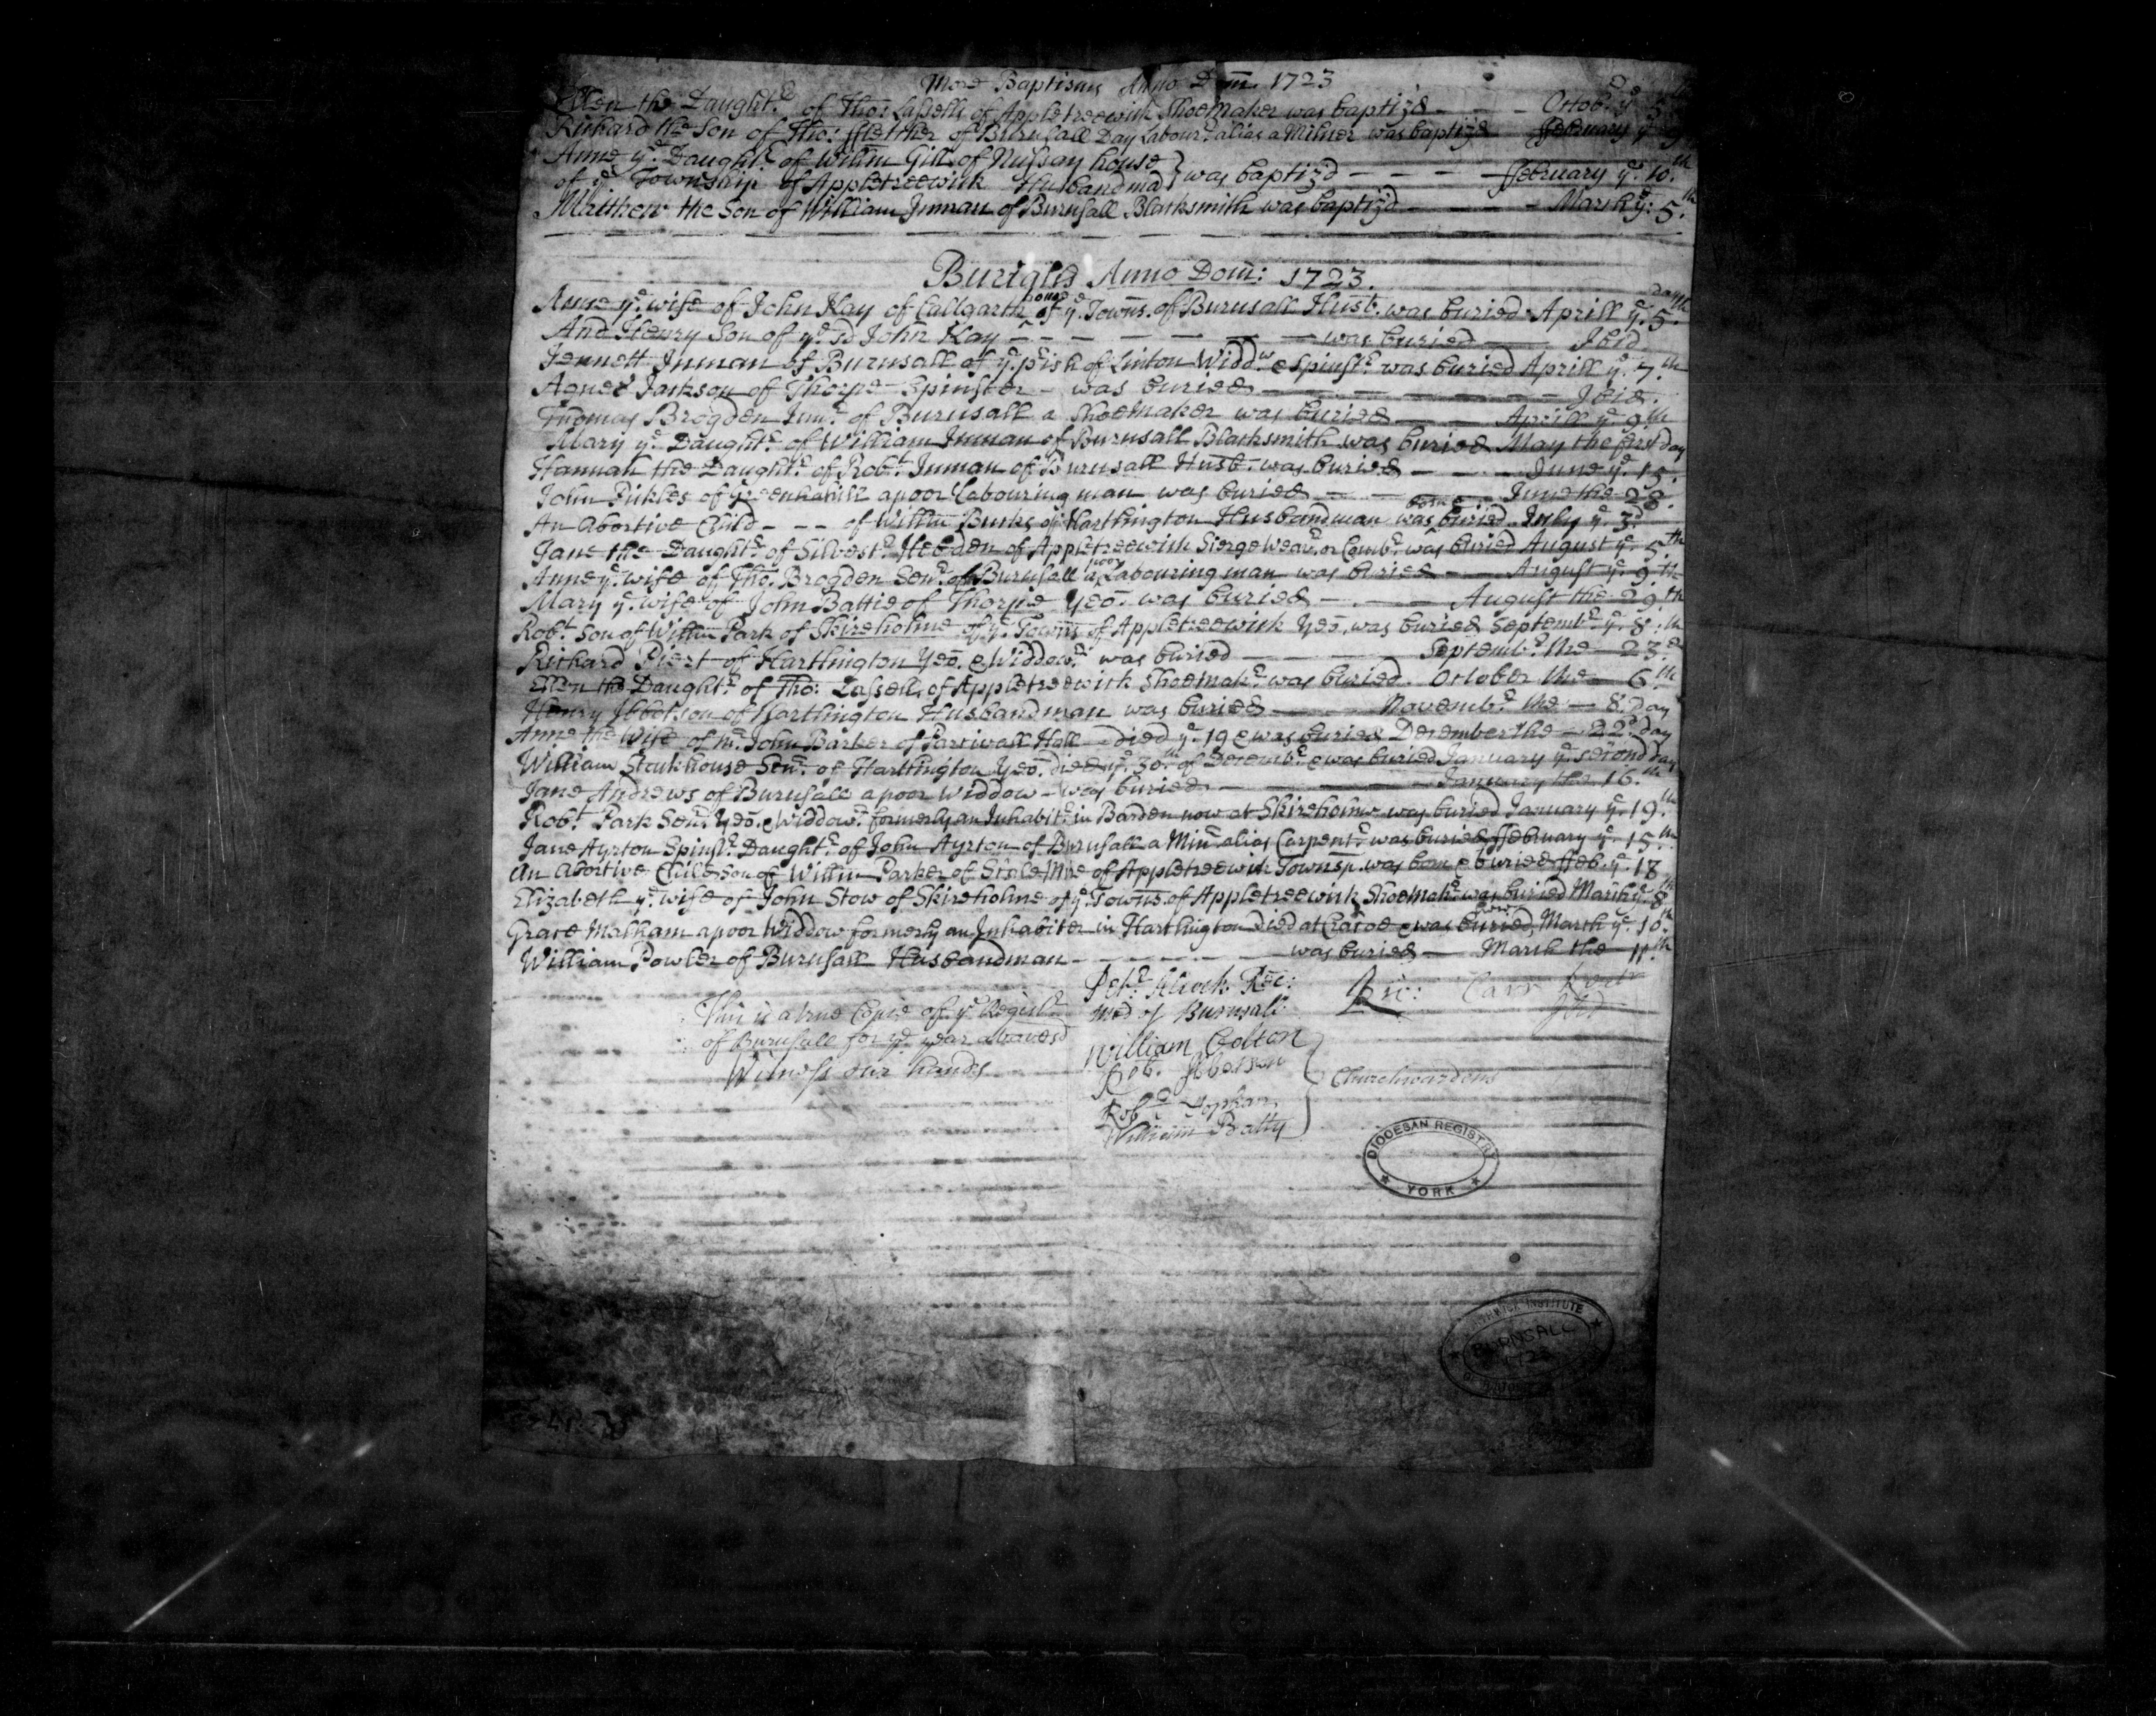 More Baptisms Anno Dom. 1723
Ellen the Daughtr. of Tho: Lassells of Appletreewick Shoemaker was baptiz'd - - - Octobr. ye
Richard the Son of Tho: ffletcher of Burnsall Day Labourr. alias a Milner was baptiz'd ffebruary ye. 9
Anne ye. Daughtr. of Willm Gill of Nussay house } was baptiz'd - - - - ffebruary ye. 10.th
of ye Township of Appletreewick Husbandmā
Matthew the Son of William Inman of Burnsall Blacksmith was baptiz'd - - - March ye: 5.th
Burialls Anno Dom̄: 1723.
Anne ye. wife of John Kay of Callgarth house of ye. Towns. of Burnsall Husb. was buried Aprill ye. 5.th day
And Henry Son of ye. sd John Kay - - - - - - was buried - Ibid
Jennett Inman of Burnsall of ye. pish of Linton Widdw. & Spinstr. was buried Aprill ye. 7.th
Agnes Jackson of Thorpe Spinster - was buried - - - - Ibid.
Thomas Brogden Junr. of Burnsall a Shoemaker was buried - Aprill ye. 9th
Mary ye. Daughtr. of William Inman of Burnsall Blacksmith was buried May the first day
Hannah the Daughtr. of Robt. Inman of Burnsall Husb. was buried - - - June ye. 15.
John Pickles of Greenhahill a poor Labouring man was buried - - - June the 28.
An Abortive Child - - - of Willm Burks of Harthington Husbandman was born & buried July ye. 3d
Jane the Daughtr. of Silvestr. Hebden of Appletreewick Sierge Weavr. or Combr. was buried August ye. 5.th
Anne ye. wife of Tho. Brogden Senr. of Burnsall a poor Labouring man was buried - August ye. 9th
Mary ye. wife of John Battie of Thorpe Yeo. was buried - - August the 29th
Robt. Son of Willm Park of Skireholme of ye. Towns of Appletreewick Yeo. was buried Septembr. ye. 8.th
Richard Piert of Harthington Yeo. & Widdowr. was buried - - Septembr. the 23.d
Ellen the Daughtr. of Tho: Lassells of Appletreewick Shoemakr. was buried. October the 6th
Henry Ibbotson of Harthington Husbandman was buried - Novembr. the - 8. day
Anne the Wife of Mr. John Barker of Parcivall Hall - died ye. 19 & was buried December the - 22d. day
William Stackhouse Senr. of Harthington Yeo. died ye. 30th of Decembr. & was buried January ye. second day
Jane Andrews of Burnsall a poor Widdow - was buried - - January the 16.th
Robt. Park Senr. Yeo. & Widdowr. formerly an Inhabitr. in Barden now at Skireholme was buried January ye. 19.th
Jane Ayrton Spinstr. Daughtr. of John Ayrton of Burnsall a Minr. alias Carpentr. was buried ffebruary ye. 15.th
An Abortive Child Son of Willm Parker of Stile Mire of Appletreewick Townsp. was born & buried ffeb. ye. 18
Elizabeth ye. wife of John Stow of Skireholme of ye. Towns. of Appletreewick Shoemakr. was buried March ye. 8th
Grace Malham a poor Widdow formerly an Inhabiter in Harthington died at Cracoe & was buried March ye. 10.th
William Fowler of Burnsall Husbandman - - - - - - was buried - March the 11.th
This is a true Copie of ye. Registr
of Burnsall for ye. year abovesd
Witness our hands
Petr. Alcock Rec:
Med of Burnsall
Ric: Carr Rectr
William Colton
Rob. Ibbotson
Robt Topham
William Batty
Churchwardens
DIOCESAN REGISTRY
YORK
BORTHWICK INSTITUTE
BURNSALL
1723